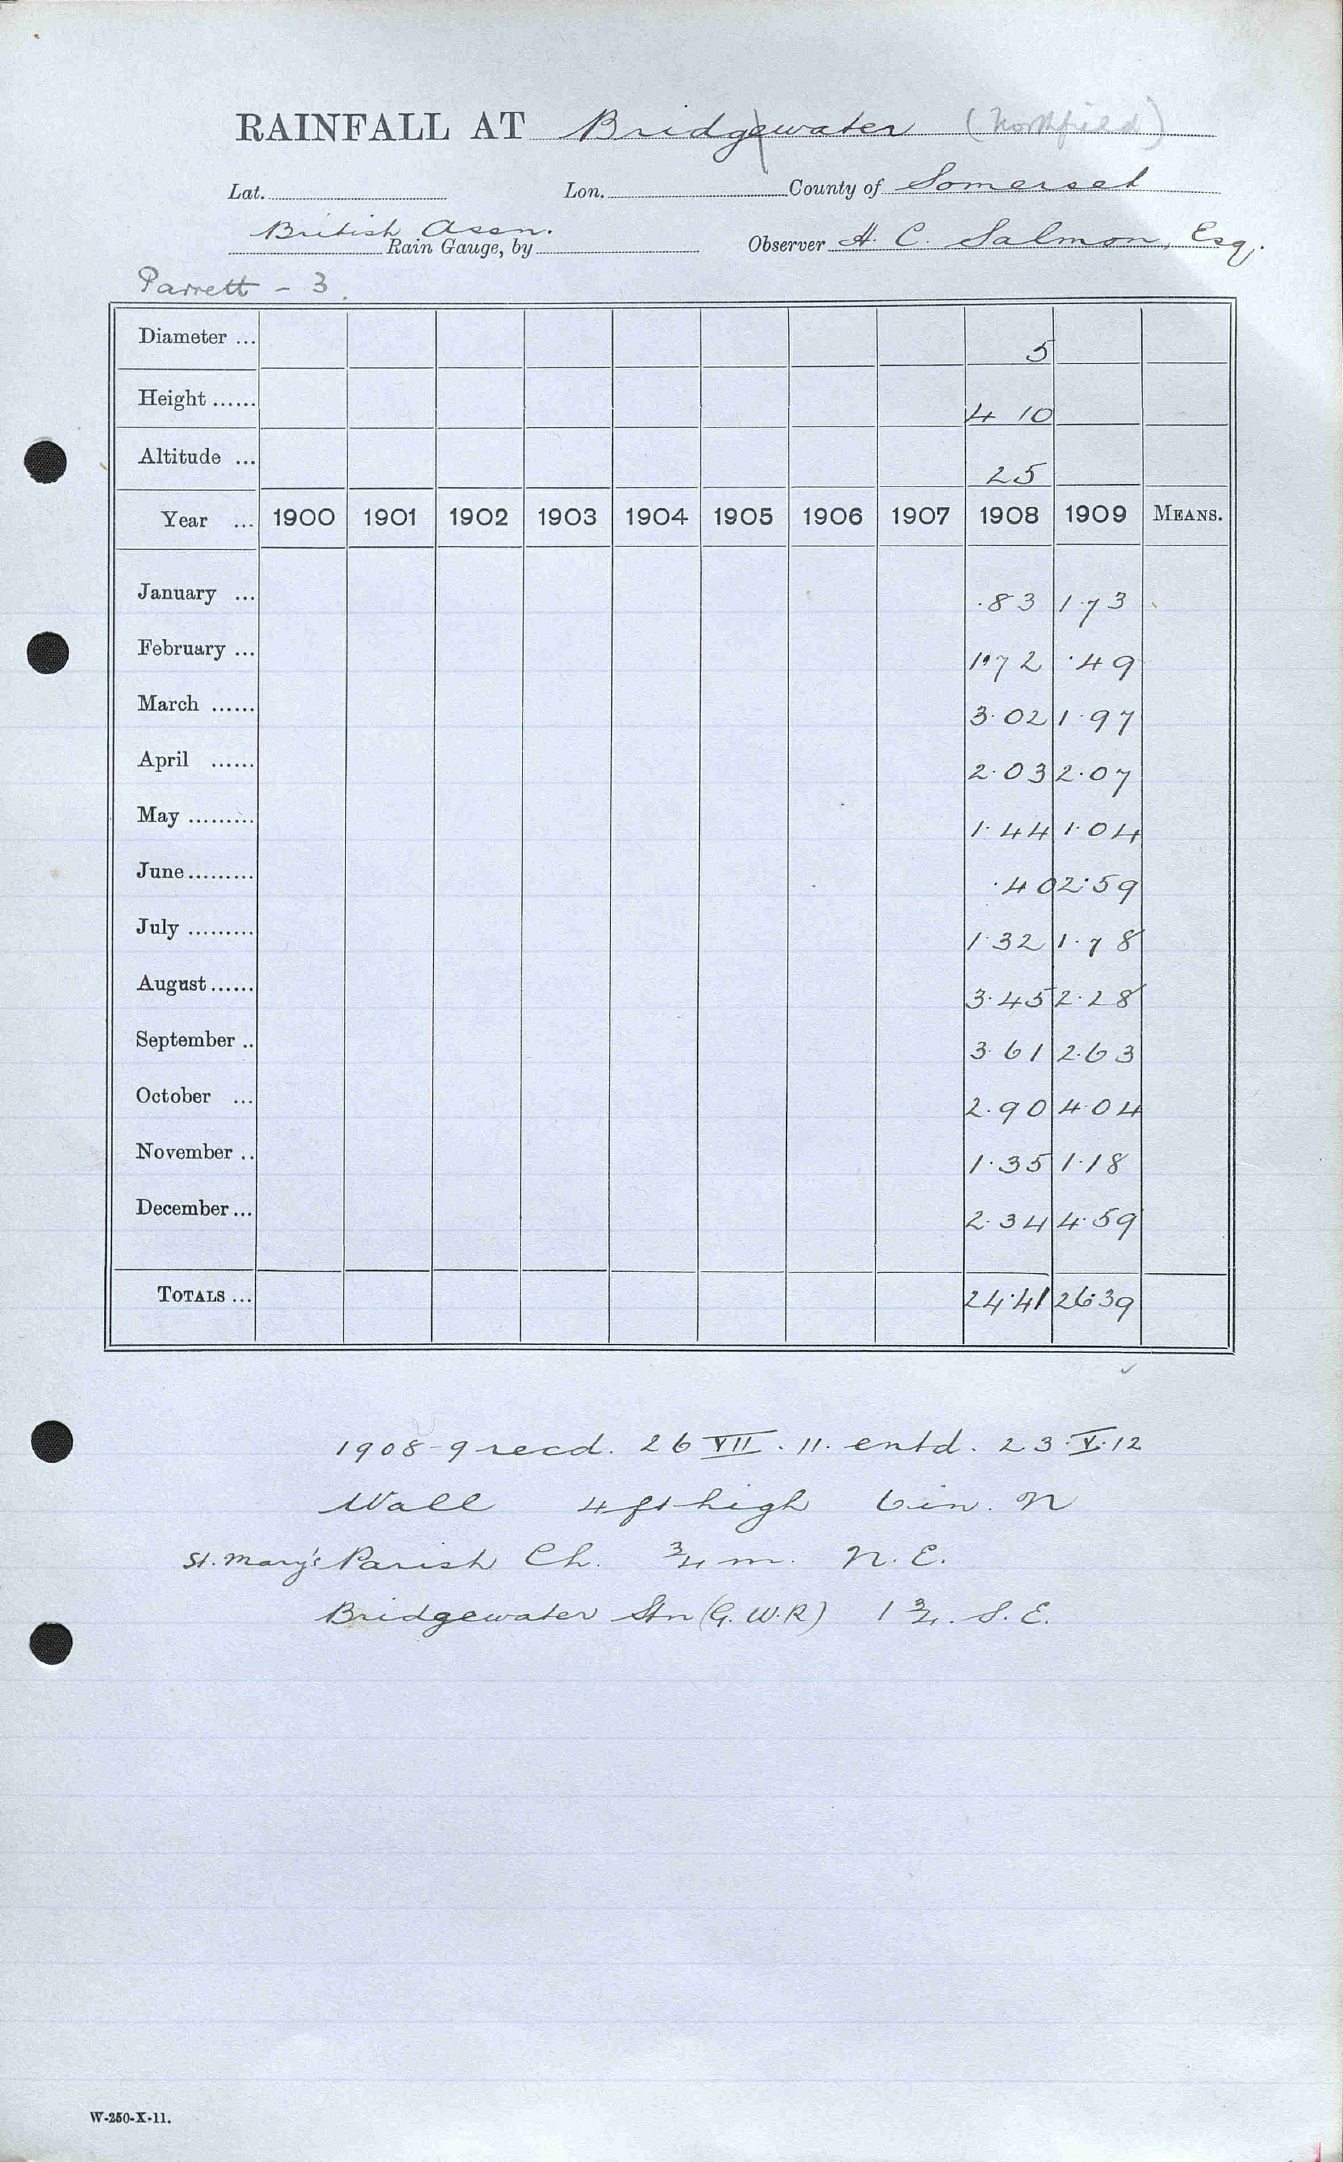 RAINFALL AT Bridgewater (Northfield)
Lat. Lon. County of Somerset
British Assn. Rain Gauge, by Observer H. C. Salmon, Esq.
Parrett - 3.
Diameter ... 5
Height ...... 4 10
Altitude ... 25
Year ... 1900 1901 1902 1903 1904 1905 1906 1907 1908 1909 MEANS.
January ... .83 1.73
February ... 1.72 .49
March ...... 3.02 1.97
April ...... 2.03 2.07
May ......... 1.44 1.04
June......... .40 2.59
July ......... 1.32 1.78
August...... 3.45 2.28
September .. 3.61 2.63
October ... 2.90 4.04
November .. 1.35 1.18
December... 2.34 4.59
TOTALS ... 24.41 26.39
1908-9 recd. 26 VII. 11. entd. 23.V.12
Wall 4 ft high 6 in. N
St. Mary's Parish Ch. 3/4 m. N.E.
Bridgewater Stn (G.W.R) 1 3/4. S.E.
W-250-X-11.